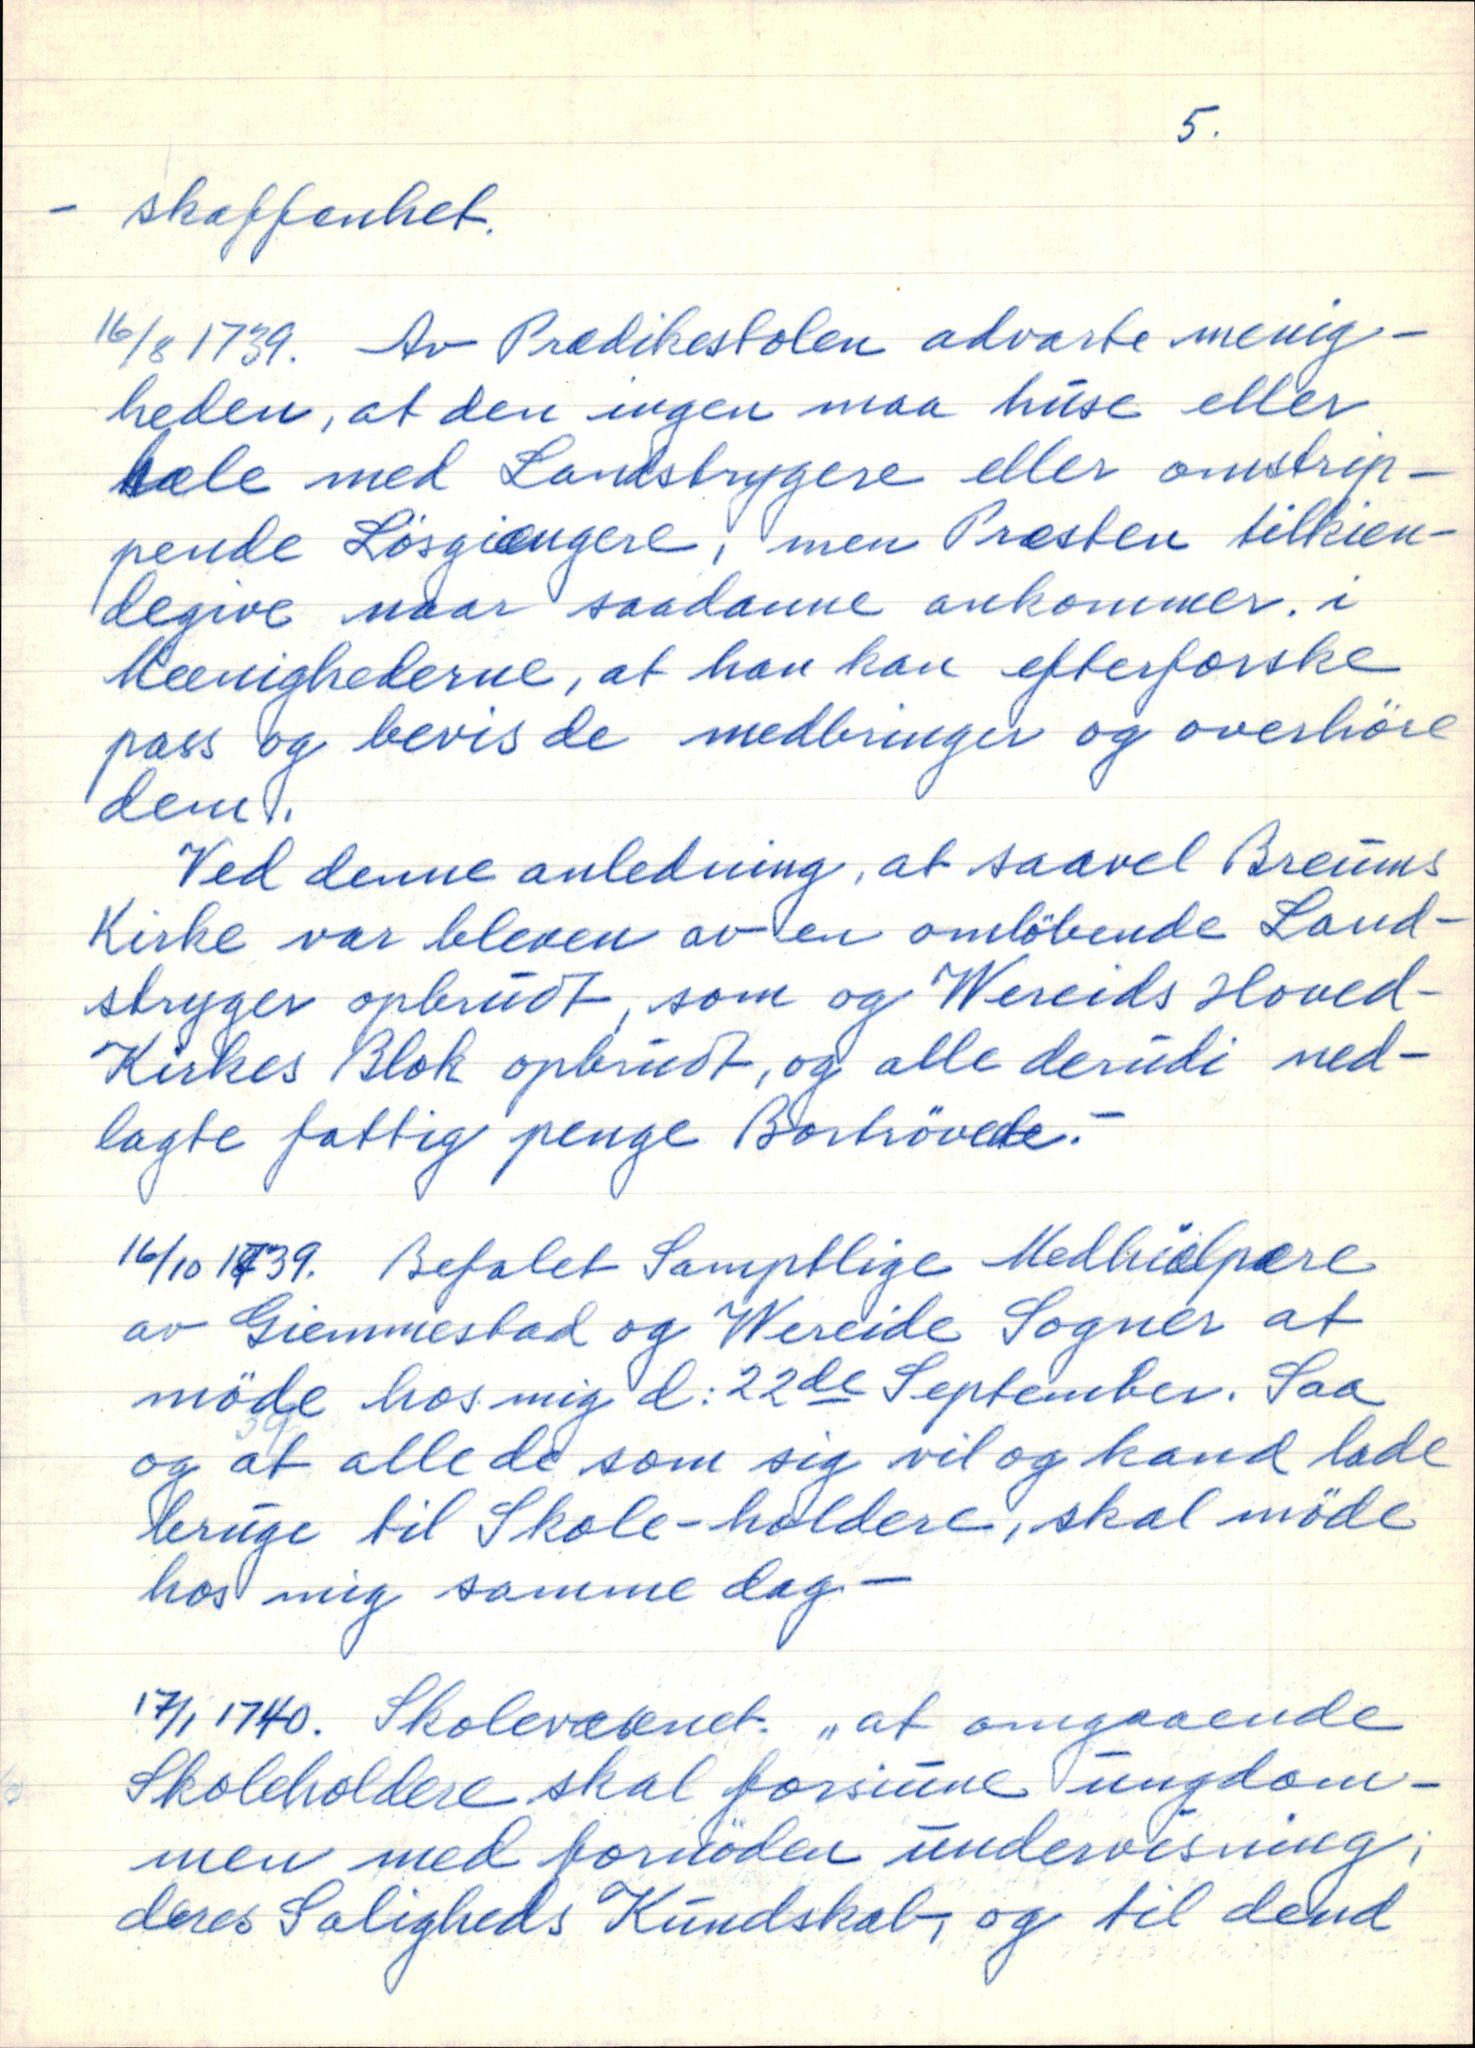 5.
- skaffenhet.
16/8 1739. Av Prædikestolen advarte menig-
heden, at den ingen maa huse eller
hæle med Landstrygere eller omstrip-
pende Lösgiængere, men Præsten tilkien-
degive naar saadanne ankommer. i
Meenighederne, at han kan efterforske
pass og bevis de medbringer og overhöre
dem.
Ved denne anledning, at saavel Breums
Kirke var bleven av en omlöbende Land-
stryger opbrudt, som og Wereids Hoved-
Kirkes Blok opbrudt, og alle derudi ned-
lagte fattig penge Bortrövede.-
16/10 1739. Befalet Samptlige Medhiælpere
av Giemmestad og Wereide Sogner at
möde hos mig d: 22de September. Saa
og at alle de som sig vil og kand lade
bruge til Skole-holdere, skal möde
hos mig samme dag.-
17/1 1740. Skolevæsenet. „at omgaaende
Skoleholdere skal forsiune ungdom-
men med fornöden undervisning i
deres Saligheds Kundskab, og til dend